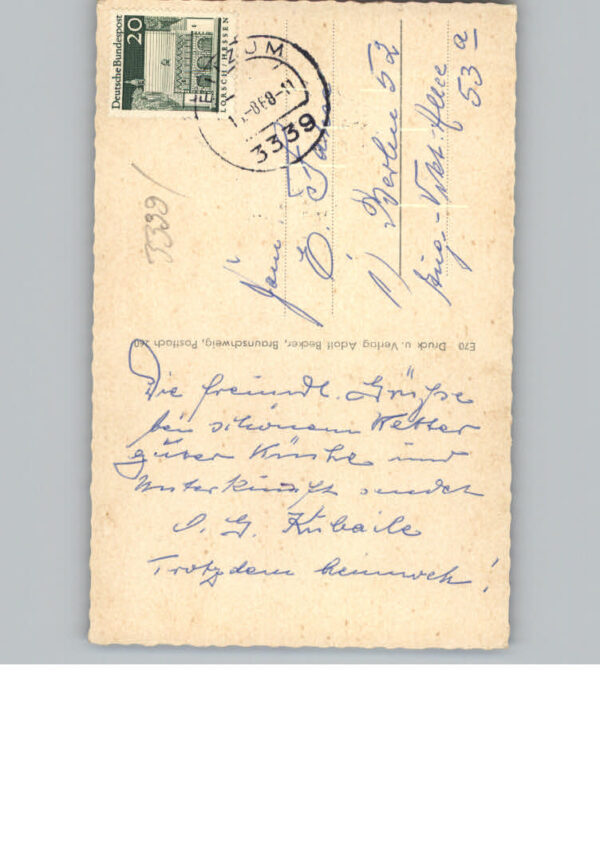 Deutsche Bundespost
20
LORSCH/HESSEN
ETZUM
-8.68-11
3339
3339/
Fam.
E.
1) Berlin 52
Aug.-Vikt. Allee
53 a
E70 Druck u. Verlag Adolf Becker, Braunschweig, Postfach 260
Die freundl. Grüße
bei schönem Wetter
guter Küche und
Unterkunft sendet
G. Kubaile
Trotzdem heimweh!